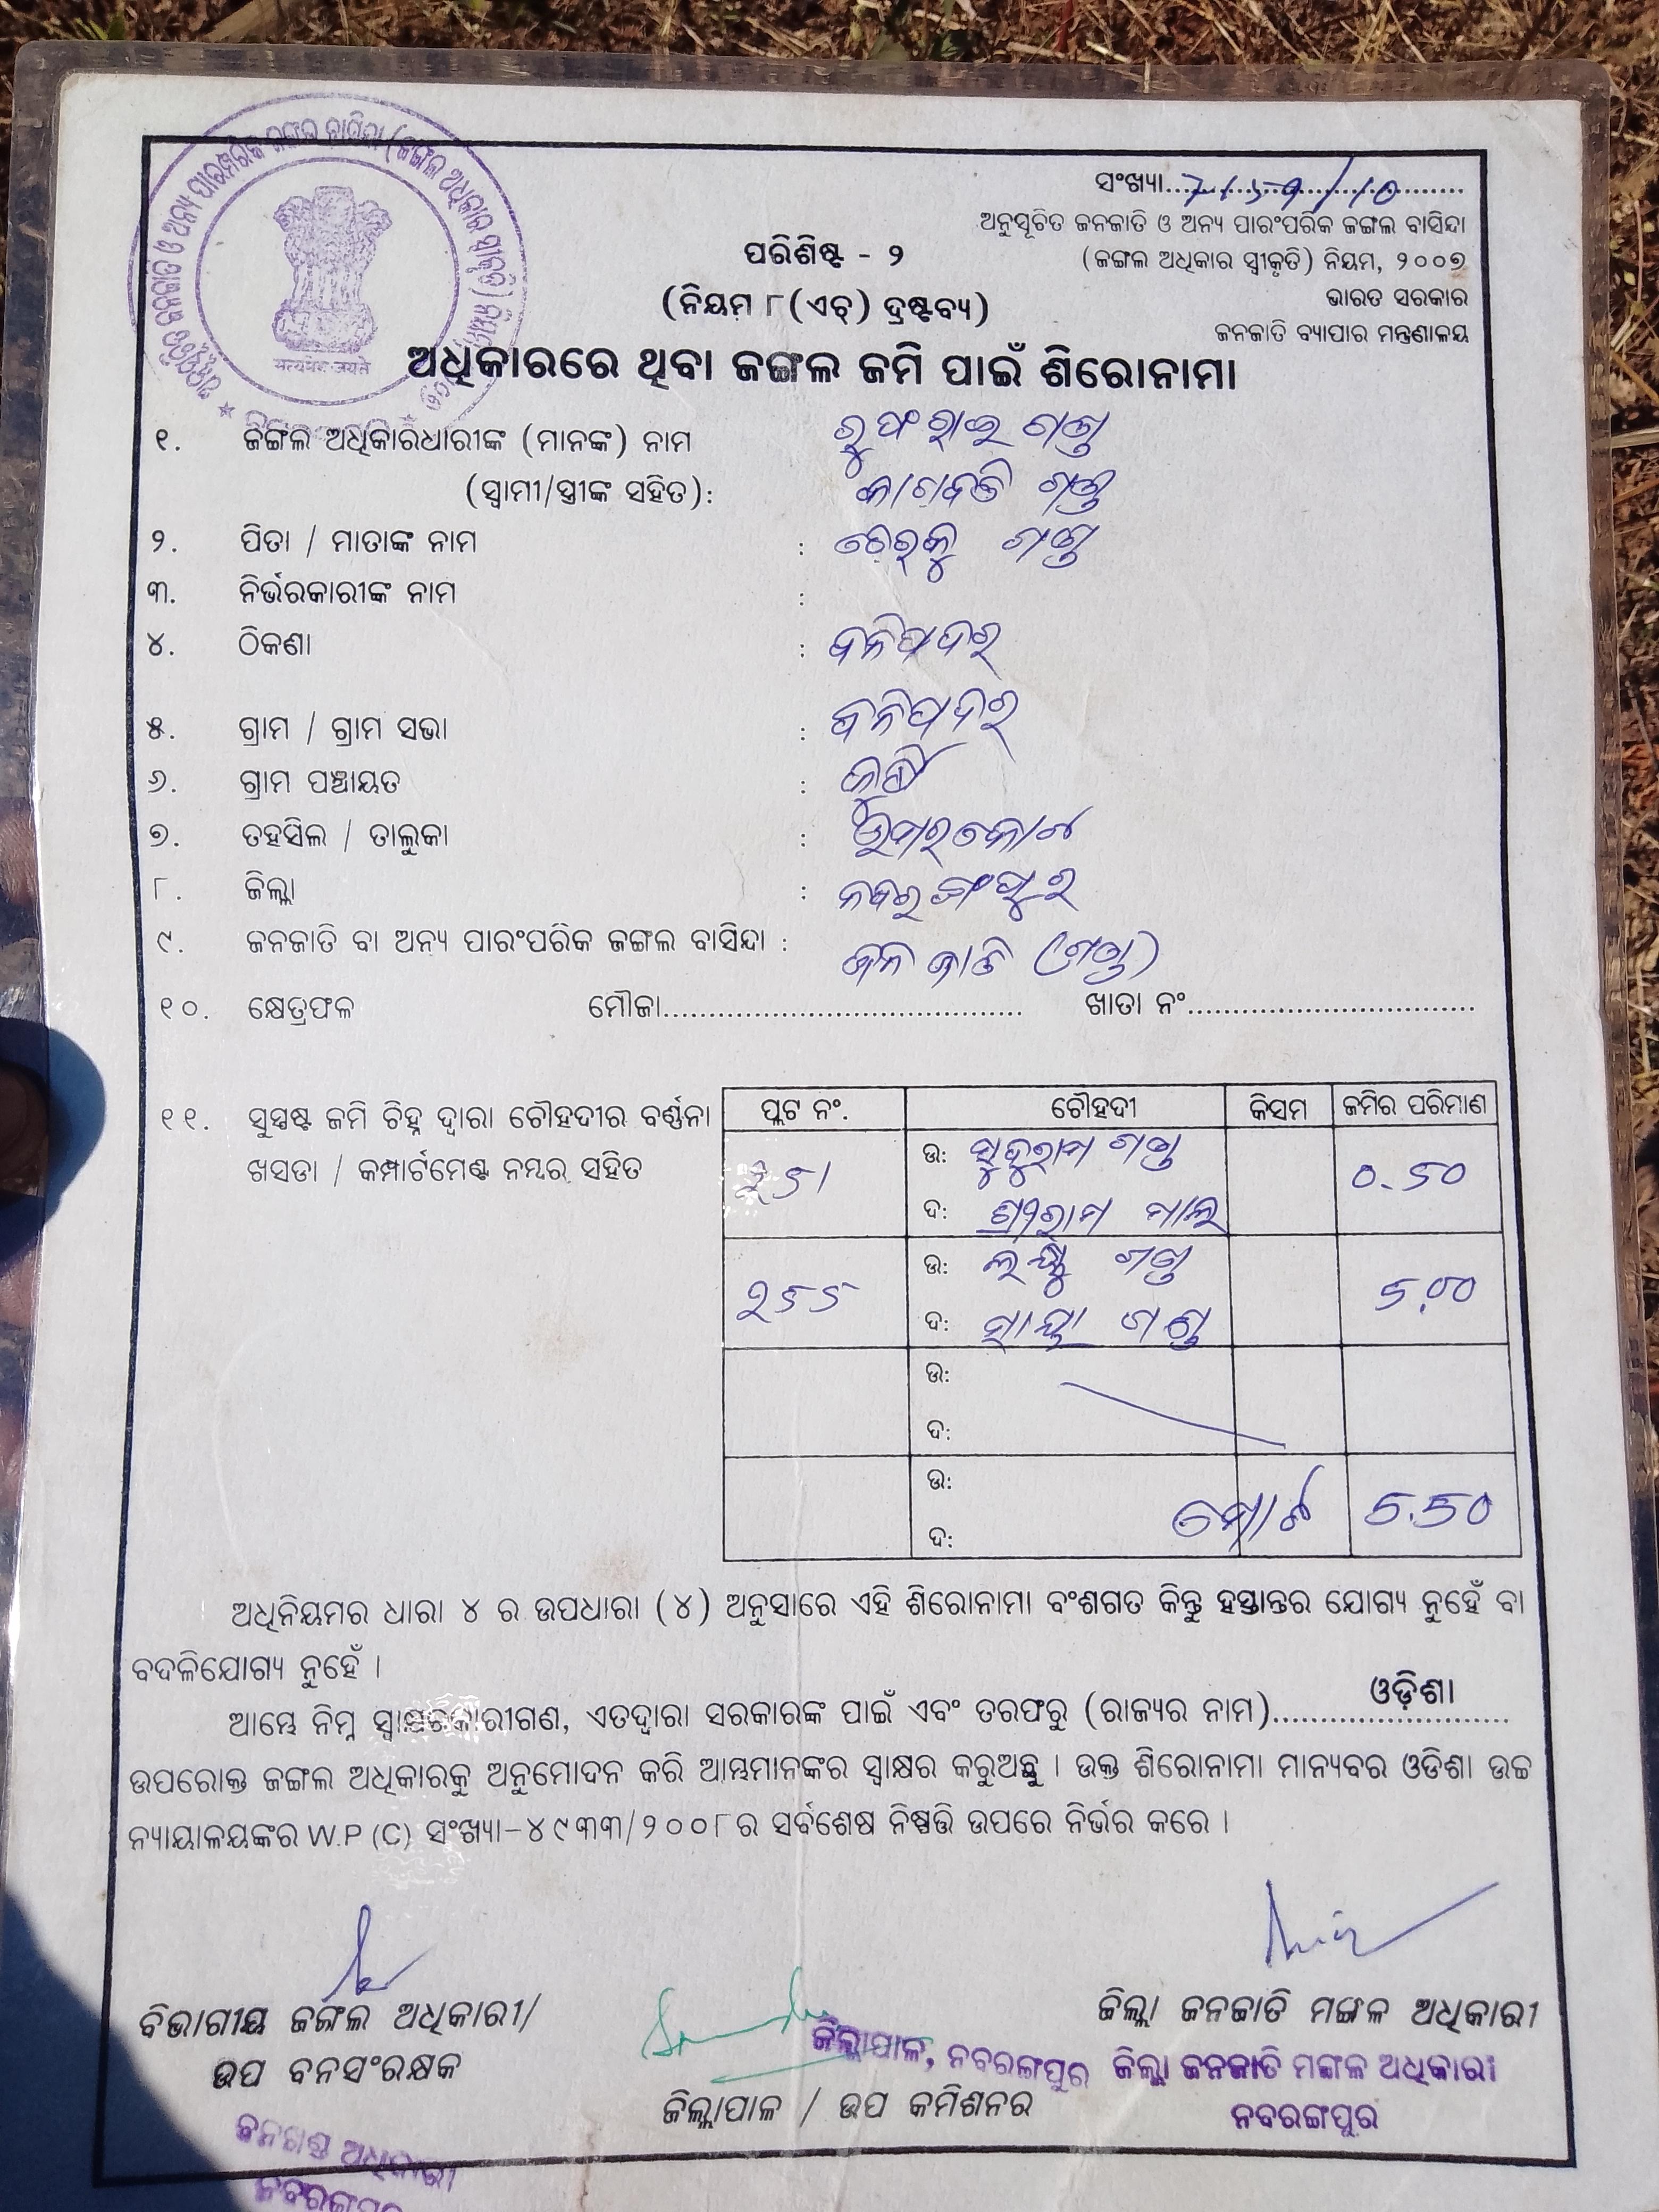 ସଂଖ୍ୟା
ଅନୁସୂଚିତ ଜନଜାତି ଓ ଅନ୍ୟ ପାରଂପରିକ ଜଙ୍ଗଲ ବାସିନ୍ଦା
(ଜଙ୍ଗଲ ଅଧିକାର ସ୍ୱୀକୃତି) ନିୟମ, ୨୦୦୭
ଭାରତ ସରକାର
ଜନଜାତି ବ୍ୟାପାର ମନ୍ତ୍ରଣାଳୟ
ପରିଶିଷ୍ଟ - ୨
(ନିୟମ ୮(ଏଚ୍) ଦ୍ରଷ୍ଟବ୍ୟ)
सत्यमेव जयते
ଅଧିକାରରେ ଥିବା ଜଙ୍ଗଲ ଜମି ପାଇଁ ଶିରୋନାମା
୧. ଜଙ୍ଗଲ ଅଧିକାରଧାରୀଙ୍କ (ମାନଙ୍କ) ନାମ ଗଣ୍ଡ
(ସ୍ୱାମୀ/ସ୍ତ୍ରୀଙ୍କ ସହିତ): ଗଣ୍ଡ
୨. ପିତା / ମାତାଙ୍କ ନାମ : ଗଣ୍ଡ
୩. ନିର୍ଭରକାରୀଙ୍କ ନାମ :
୪. ଠିକଣା :
୫. ଗ୍ରାମ / ଗ୍ରାମ ସଭା :
୬. ଗ୍ରାମ ପଞ୍ଚାୟତ :
୭. ତହସିଲ / ତାଲୁକା : ଉମରକୋଟ
୮. ଜିଲ୍ଲା : ନବରଙ୍ଗପୁର
୯. ଜନଜାତି ବା ଅନ୍ୟ ପାରଂପରିକ ଜଙ୍ଗଲ ବାସିନ୍ଦା : ଜନଜାତି (ଗଣ୍ଡ)
୧୦. କ୍ଷେତ୍ରଫଳ ମୌଜା........ ଖାତା ନଂ........
୧୧. ସୁସ୍ପଷ୍ଟ ଜମି ଚିହ୍ନ ଦ୍ୱାରା ଚୌହଦୀର ବର୍ଣ୍ଣନା
ଖସଡା / କମ୍ପାର୍ଟମେଣ୍ଟ ନମ୍ବର ସହିତ
ପ୍ଲଟ ନଂ. ଚୌହଦୀ କିସମ ଜମିର ପରିମାଣ
ଉ: ଗଣ୍ଡ 0.50
ଦ: ଶ୍ରୀରାମ ମାଲି
ଉ: ଗଣ୍ଡ 5.00
ଦ: ଗଣ୍ଡ
ଉ:
ଦ:
ଉ:
ଦ: ମୋଟ 5.50
ଅଧିନିୟମର ଧାରା ୪ ର ଉପଧାରା (୪) ଅନୁସାରେ ଏହି ଶିରୋନାମା ବଂଶଗତ କିନ୍ତୁ ହସ୍ତାନ୍ତର ଯୋଗ୍ୟ ନୁହେଁ ବା
ବଦଳିଯୋଗ୍ୟ ନୁହେଁ ।
ଆମ୍ଭେ ନିମ୍ନ ସ୍ୱାକ୍ଷରକାରୀଗଣ, ଏତଦ୍ୱାରା ସରକାରଙ୍କ ପାଇଁ ଏବଂ ତରଫରୁ (ରାଜ୍ୟର ନାମ)........ ଓଡ଼ିଶା
ଉପରୋକ୍ତ ଜଙ୍ଗଲ ଅଧିକାରକୁ ଅନୁମୋଦନ କରି ଆମ୍ଭମାନଙ୍କର ସ୍ୱାକ୍ଷର କରୁଅଛୁ । ଉକ୍ତ ଶିରୋନାମା ମାନ୍ୟବର ଓଡିଶା ଉଚ୍ଚ
ନ୍ୟାୟାଳୟଙ୍କର W.P (C) ସଂଖ୍ୟା-୪୯୩୩/୨୦୦୮ର ସର୍ବଶେଷ ନିଷ୍ପତ୍ତି ଉପରେ ନିର୍ଭର କରେ ।
ବିଭାଗୀୟ ଜଙ୍ଗଲ ଅଧିକାରୀ/
ଉପ ବନସଂରକ୍ଷକ
ବନଖଣ୍ଡ ଅଧିକାରୀ
ନବରଙ୍ଗପୁର
ଜିଲ୍ଲାପାଳ, ନବରଙ୍ଗପୁର
ଜିଲ୍ଲାପାଳ / ଉପ କମିଶନର
ଜିଲ୍ଲା ଜନଜାତି ମଙ୍ଗଳ ଅଧିକାରୀ
ଜିଲ୍ଲା ଜନଜାତି ମଙ୍ଗଳ ଅଧିକାରୀ
ନବରଙ୍ଗପୁର